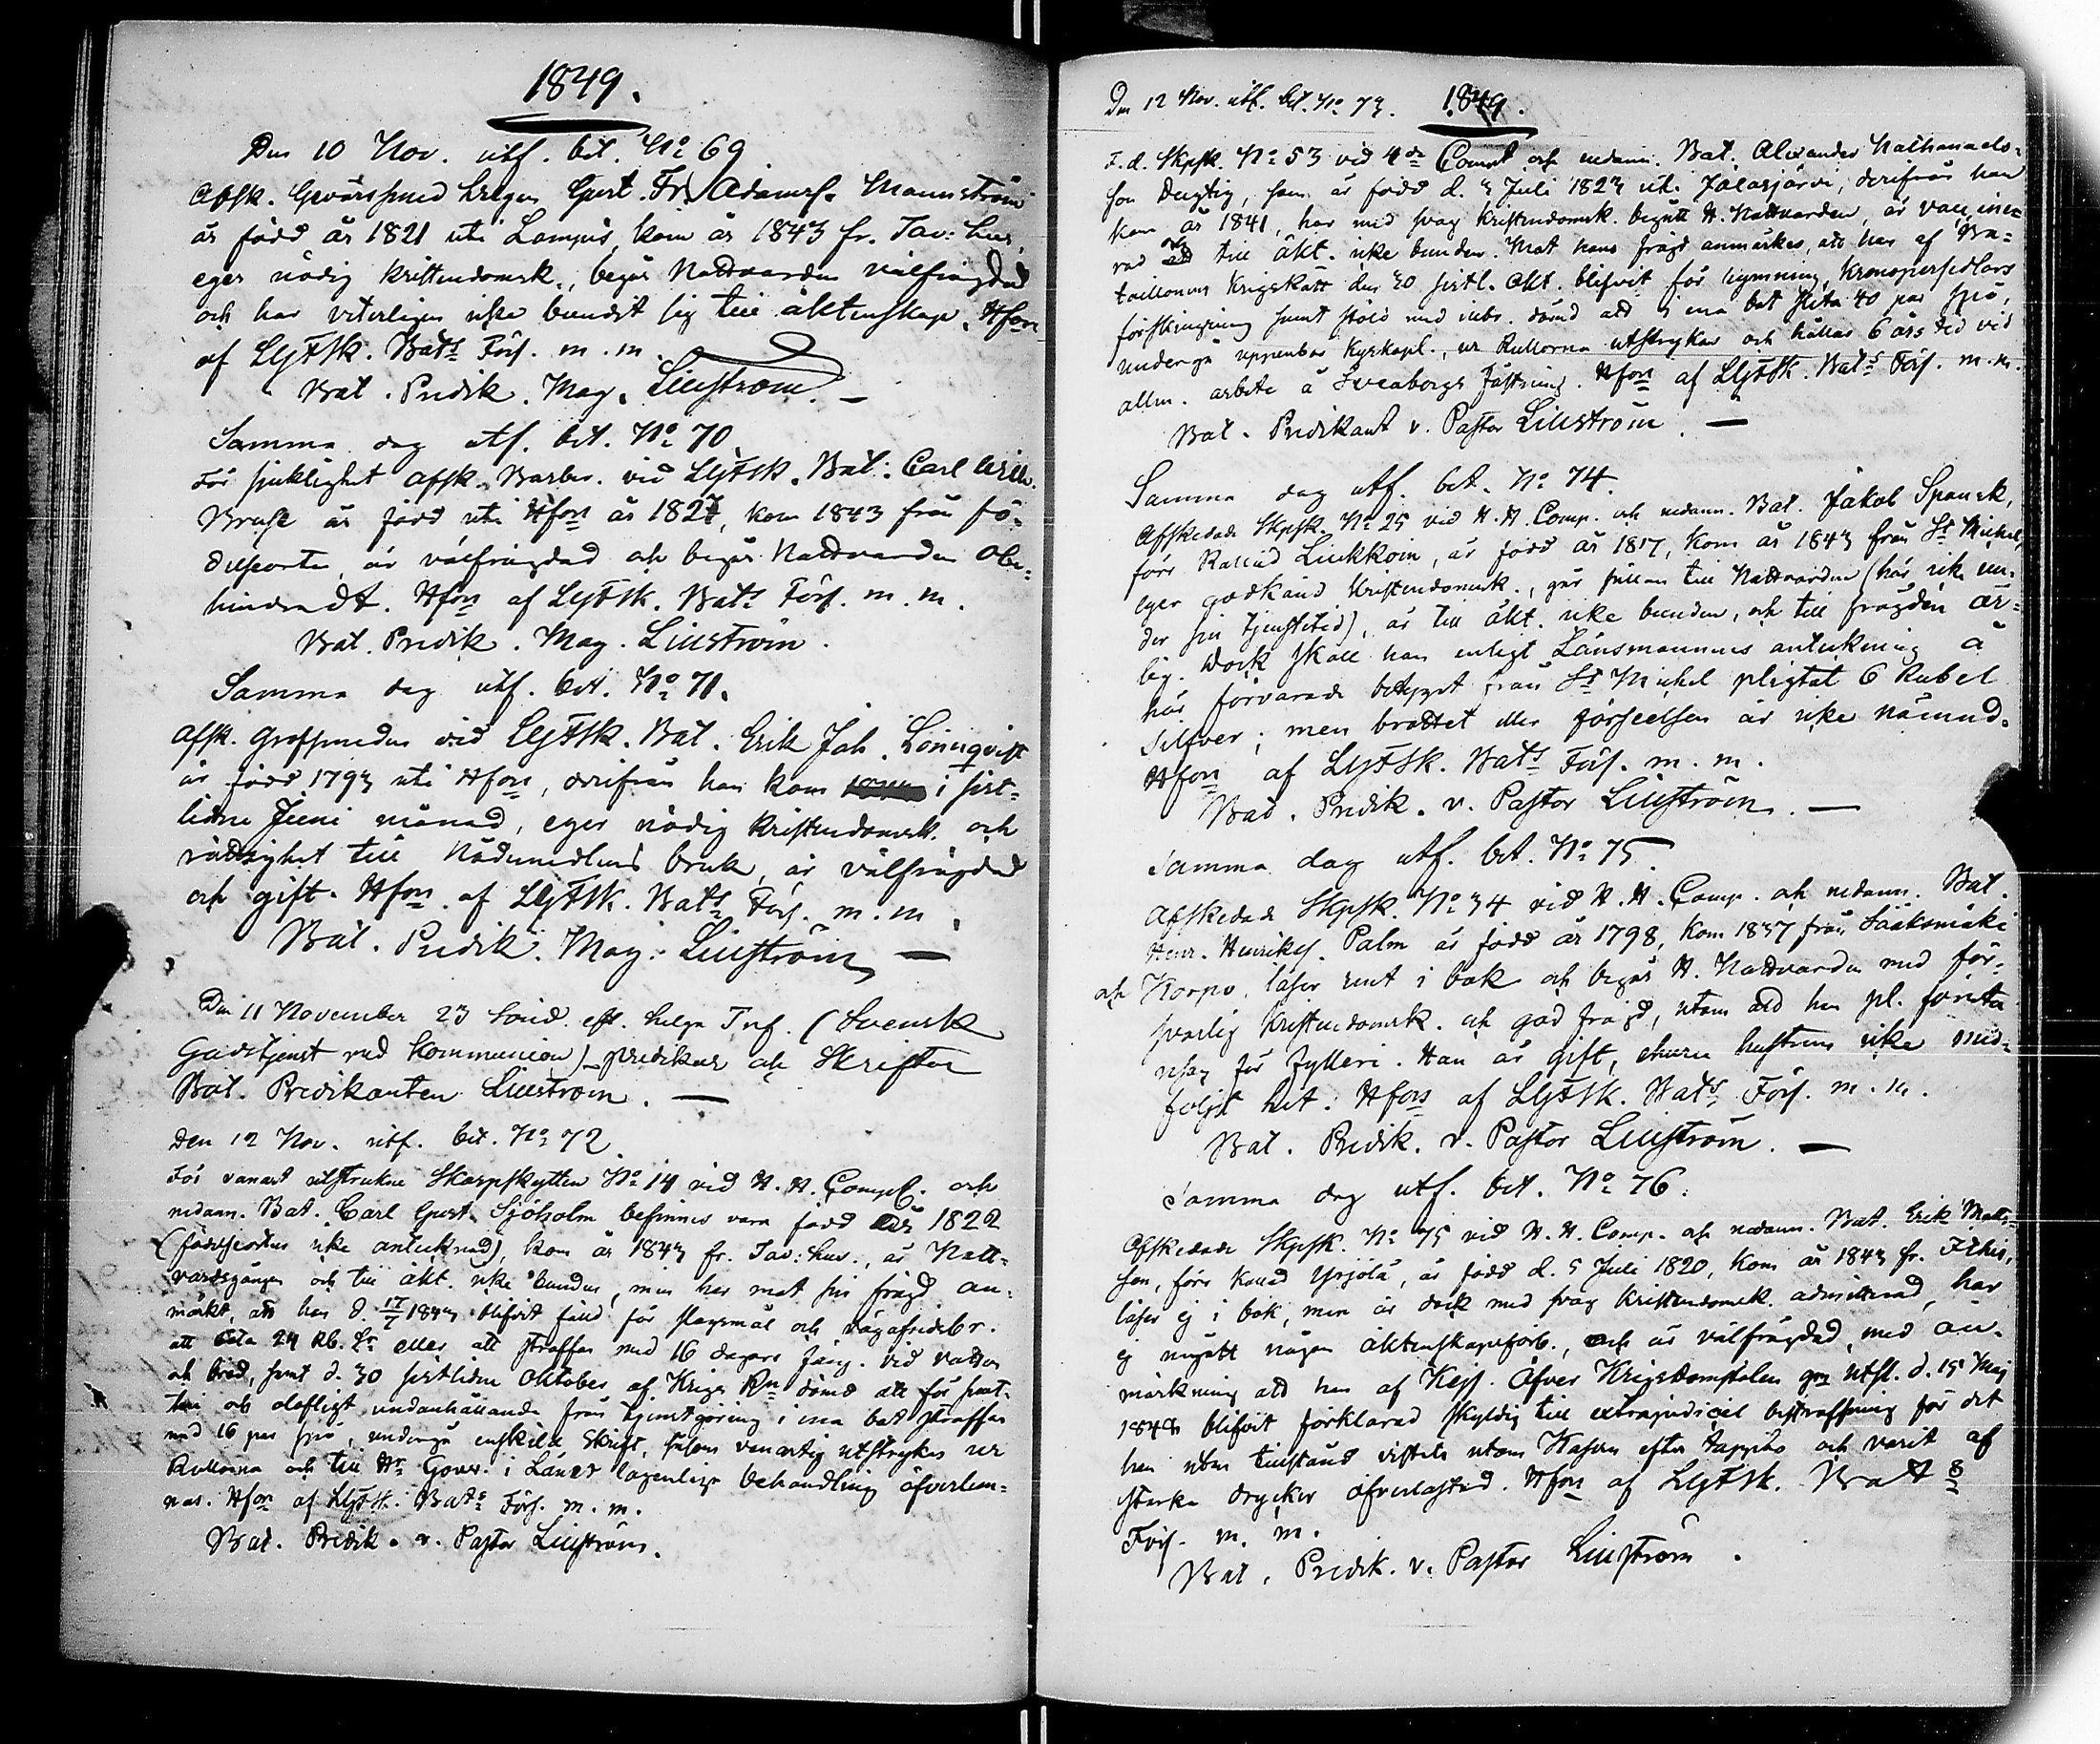 1849.
Den 10 Nov. utf. bet. No 69
Afsk. Gevärssmed Gust. Fr. Adamss. Mannström
är född år 1821 uti Lampis, kom år 1843 fr. Tav: hus,
eger nödig kristendomsk., begår Nattvarden välfrägdad
och har veterligen icke bundit sig till äktenskap. Hfors
af LgFSk. Bats Förs. m. m.
Bat. Predik. Mag. Lillström. —
Samma dag utf. bet. No 70
För sjuklighet afsk. Barber. vid LgFSk. Bat: Carl Wilh.
Bruse är född uti Hfors år 1827, kom 1843 från fö-
delseorten, är välfrägdad och begår Nattvarden obe-
hindradt. Hfors af LgFSk. Bats Förs. m. m.
Bat. Predik. Mag. Lillström.
Samma dag utf. bet. No 71.
Afsk. Grofsmeden vid LgFSk. Bat. Erik Joh. Lönnqvist
är född 1793 uti Hfors, derifrån han kom i sist-
lidne Juni månad, eger nödig kristendomsk. och
rättighet till Nådemedlens bruk, är välfrägdad
och gift. Hfors af LgFSk. Bats Förs. m. m.
Bat. Predik. Mag. Lillström —
Den 11 November 23 Sönd. eft. helga Tref. (Svensk
Gudstjenst med kommunion) predikar och Skriftar
Bat. Predikanten Lillström. —
Den 12 Nov. utf. bet. No 72
För vanart utstrukne Skarpskytten No 14 vid H. H. Comp. och
nedann. Bat. Carl Gust. Sjöholm befinnes vara född år 1822
(födelseorten icke antecknad), kom år 1843 fr. Tav: hus., är Natt-
vardsgången och till äkt. icke bunden, men har mot sin frägd an-
märkt, att han d. 17/7 1843 blifvit fälld för slagsmål och
att böta 24 Rb. Sr eller att straffas med 16 dagars fäng. vid vatten
och bröd, samt d. 30 sistlidne Oktober af Krigs Rn dömd att för
och olofligt undanhållande från tjenstgöring i ena bot straffas
med 16 par spö, undergå enskild Skrift, såsom vanartig utstrykas ur
Rullorna och till Hr Guver. i Länet lagenliga behandling öfverlem-
nas. Hfors af LgFSk. Bats Förs. m. m.
Bat. Predik. v. Pastor Lillström.
Den 12 Nov. utf. bet. No 73. 1849.
F. d. Skpsk. No 53 vid 4de Comp. och nedann. Bat. Alexander Nathanaels-
son Dugtig, som är född d. 3 Juli 1823 uti Jalasjärvi, derifrån han
kom år 1841, har med svag kristendomsk. begått H. Nattvarden, är vaccine-
rad och till äkt. icke bunden. Mot hans frägd anmärkes, att han af Ba-
taillonens Krigsrätt den 30 sistl. Okt. blifvit för rymning, Kronopersedlars
förskingring samt stöld med inbr. dömd att i ena bot slita 40 par spö,
undergå uppenbar kyrkopl., ur Rullorna utstrykas och hållas 6 års tid vid
allm. arbete å Sveaborgs fästning. Hfors af LgFSk. Bats Förs. m. m.
Bat. Predikant v. Pastor Lillström. —
Samma dag utf. bet. No 74.
Afskedade Skpsk. No 25 vid H. H. Comp. och nedann. Bat. Jakob Spansk,
förr kallad Luukkoin, är född år 1817, kom år 1843 från St Michel,
eger godkänd Kristendomsk., går sällan till Nattvarden (här icke un-
der sin tjenstetid), är till äkt. icke bunden, och till frägden är-
lig. Dock skall han enligt Länsmannens anteckning å
här förvarade betyget från St Michel pligtat 6 Rubel
Silfver; men brottet eller förseelsen är icke nämnd.
Hfors af LgFSk. Bats Förs. m. m.
Bat. Predik. v. Pastor Lillström. —
Samma dag utf. bet. No 75
Afskedade Skpsk. No 34 vid H. H. Comp. och nedann. Bat.
Henr. Henrikss. Palm är född år 1798, kom 1837 från Sääksmäki
och Korpo, läser rent i bok och begår H. Nattvarden med för-
svarlig kristendomsk. och god frägd, utom att han pl.
resa för fylleri. Han är gift, ehuru hustrun icke med-
följt hit. Hfors af LgFSk. Bats Förs. m. m.
Bat. Predik. v. Pastor Lillström. —
Samma dag utf. bet. No 76.
Afskedade Skpsk. No 75 vid H. H. Comp. och nedann. Bat. Erik Matts-
son, förr kallad Yrjölä, är född d. 5 Juli 1820, kom år 1843 fr.
läser ej i bok, men är dock med svag Kristendomsk. admitterad, har
ej ingått någon äktenskapsförb., och är välfrägdad, med an-
märkning att han af Kejs. Öfver Krigsdomstolen gm utsl. d. 15 Maj
1848 blifvit förklarad skyldig till extrajudiciel bestraffning för det
han utan tillstånd vistats utom Kasern efter tappto och varit af
starka drycker öfverlastad. Hfors af LgFSk. Bats
Förs. m. m.
Bat. Predik. v. Pastor Lillström.